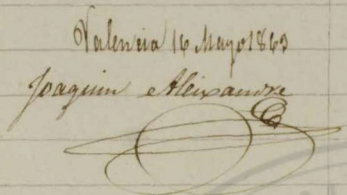 Valencia 16 Mayo 1863
Joaquin Aleixandre